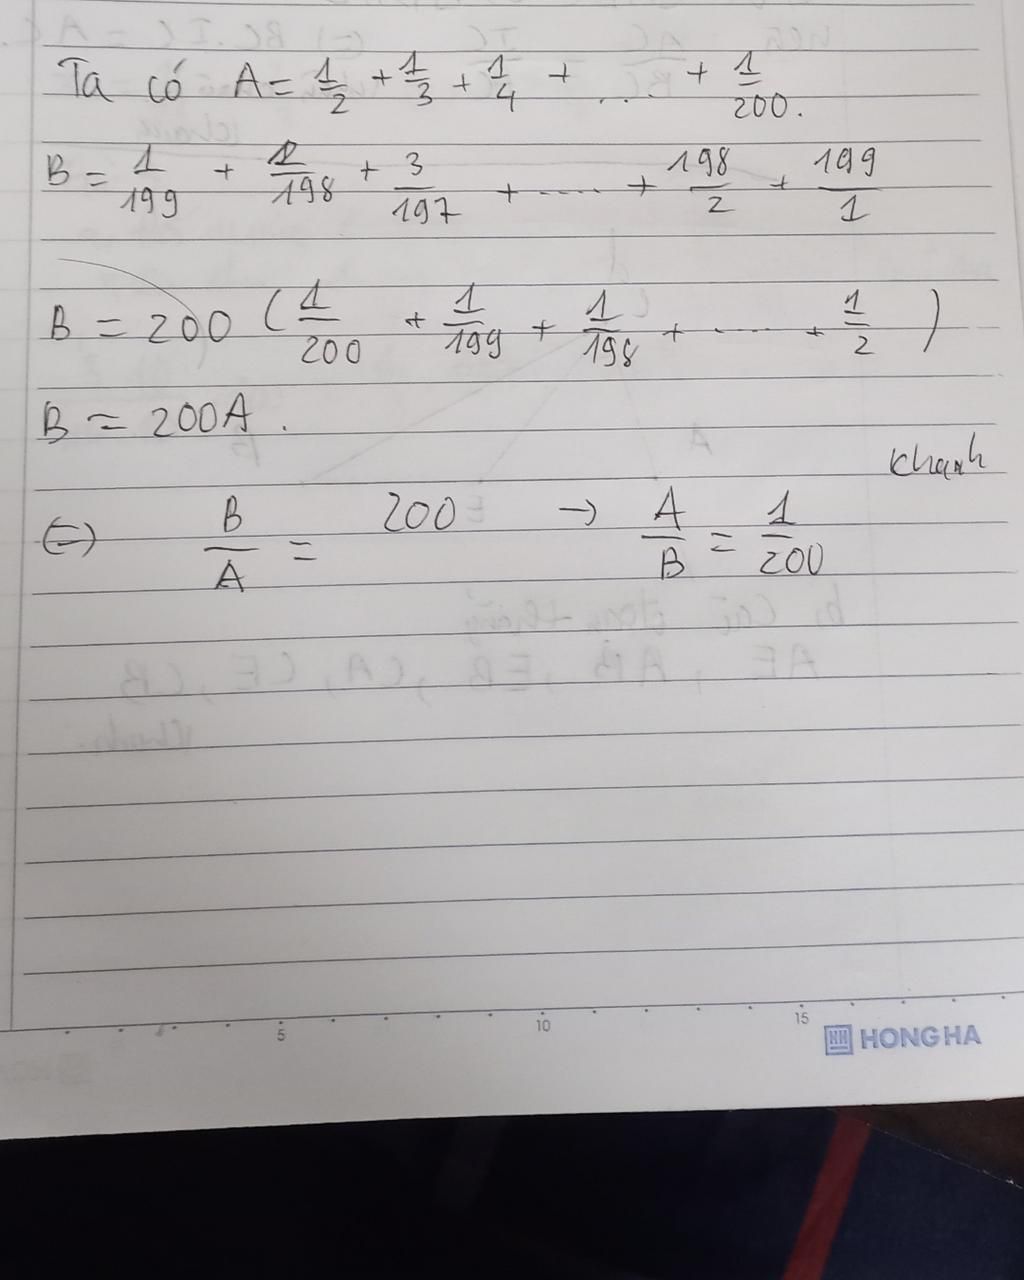 Ta có A = 1/2 + 1/3 + 1/4 + .... + 1/200.
B = 1/199 + 2/198 + 3/197 + ..... + 198/2 + 199/1
B = 200 (1/200 + 1/199 + 1/198 + ..... + 1/2)
B = 200A.
Khanh
⇔ B/A = 200 → A/B = 1/200
5 10 15
HONG HA